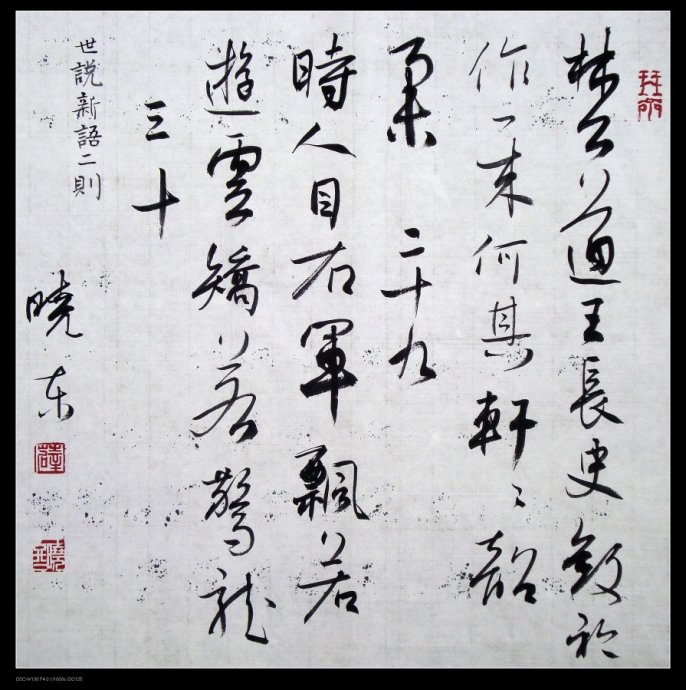 林公道王長史斂衿
作一来何其軒〻韶
舉 二十九
時人目右軍飄若
遊雲矯若驚龍
三十
世說新語二則
曉东